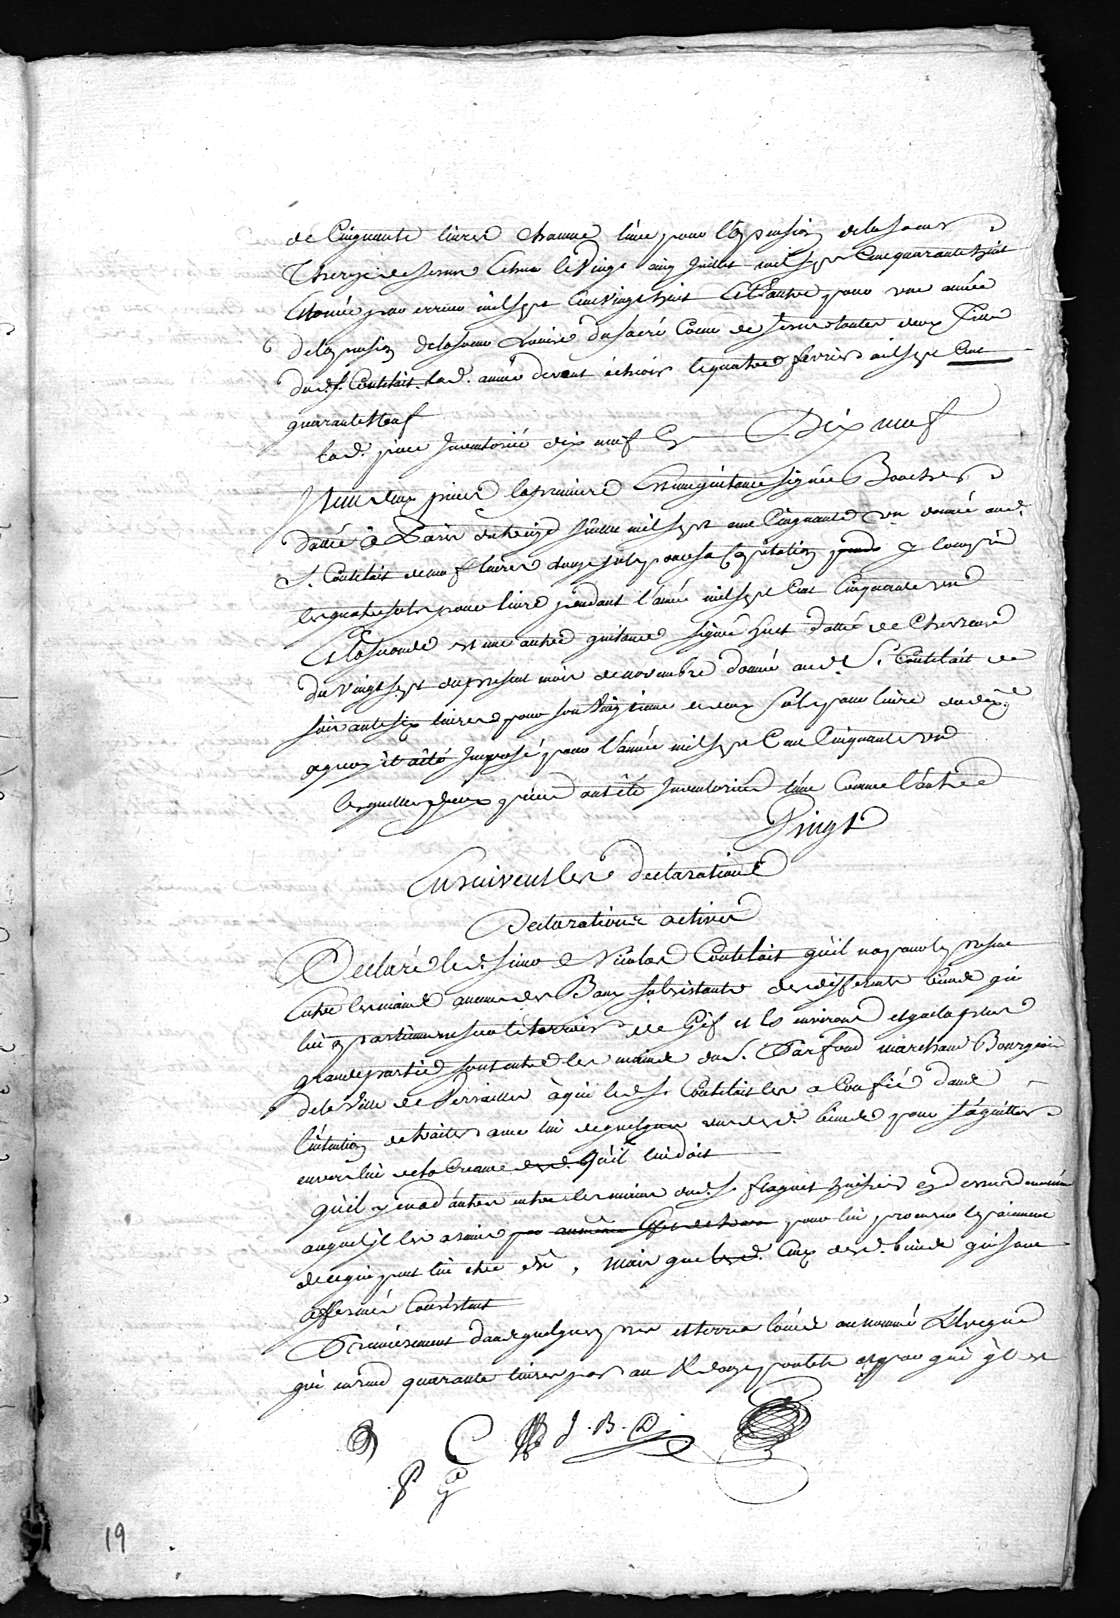 de Cinquante livres chacune l'une pour la pension de la soeur
Therese de Jesus Echue le Vingt cinq Juillet mil sept Cent quarante huit
dattée par erreur mil sept Cent vingt huit Et l'autre pour une année
de la pension de la soeur Louise du Sacré Coeur de Jesus toutes deux filles
dud. S. Coutelait lad. année devant échoir le quatre fevrier mil sept Cent
quarante Neuf
Lad. piece Inventoriée dix neuf Cy Dix neuf
Item deux pieces la premiere Est une quittance signée Boucher
dattée à Paris du treize mil sept cent Cinquante un donnée aud.
S. Coutelait de neuf livres douze sols pour sa Capitation y compris
les quatre sols pour livre pendant l'année mil sept Cent Cinquante un
Et la seconde est une autre quittance signée huet dattée de Chevreuse
du Vingt sept du present mois de novembre donnée aud. S. Coutelait de
soixante six livres pour son Vingtieme et deux sols pour livre du dix.e
a quoy il a été Imposé pour l'année mil sept Cent Cinquante un
Lesquelles deux pieces ont été Inventoriées l'une Comme l'autre
Vingt
Ensuivent les declarations
Declarations actives
Declare led. Simon Nicolas Coutelait qu'il n'a pour le present
Entre les mains aucuns des Baux subsistants des differents biens qui
lui appartiennent sur le terroir de Gif et les environs et que la plus
grande partie sont entre les mains du S. Parfond marchand Bourgeois
de la Ville de Versailles à qui led. S. Coutelait les a Confiés dans
l'intention de traiter avec lui de quelques uns desd. biens pour s'aquitter
envers lui de la Creance qu'il lui doit
qu'il y en a d'autres entre les mains dud. S. flaquet huissier
auquel Il les a remis pour lui procurer le paiement
de ce qui peut lui etre dû, mais que Ceux desd. biens qui sont
affermés Consistent
Premierement dans quelques prés et terres loués au nommé
qui en rend quarante livres par an & douze poulets et que qui y est
J. B. D.
19